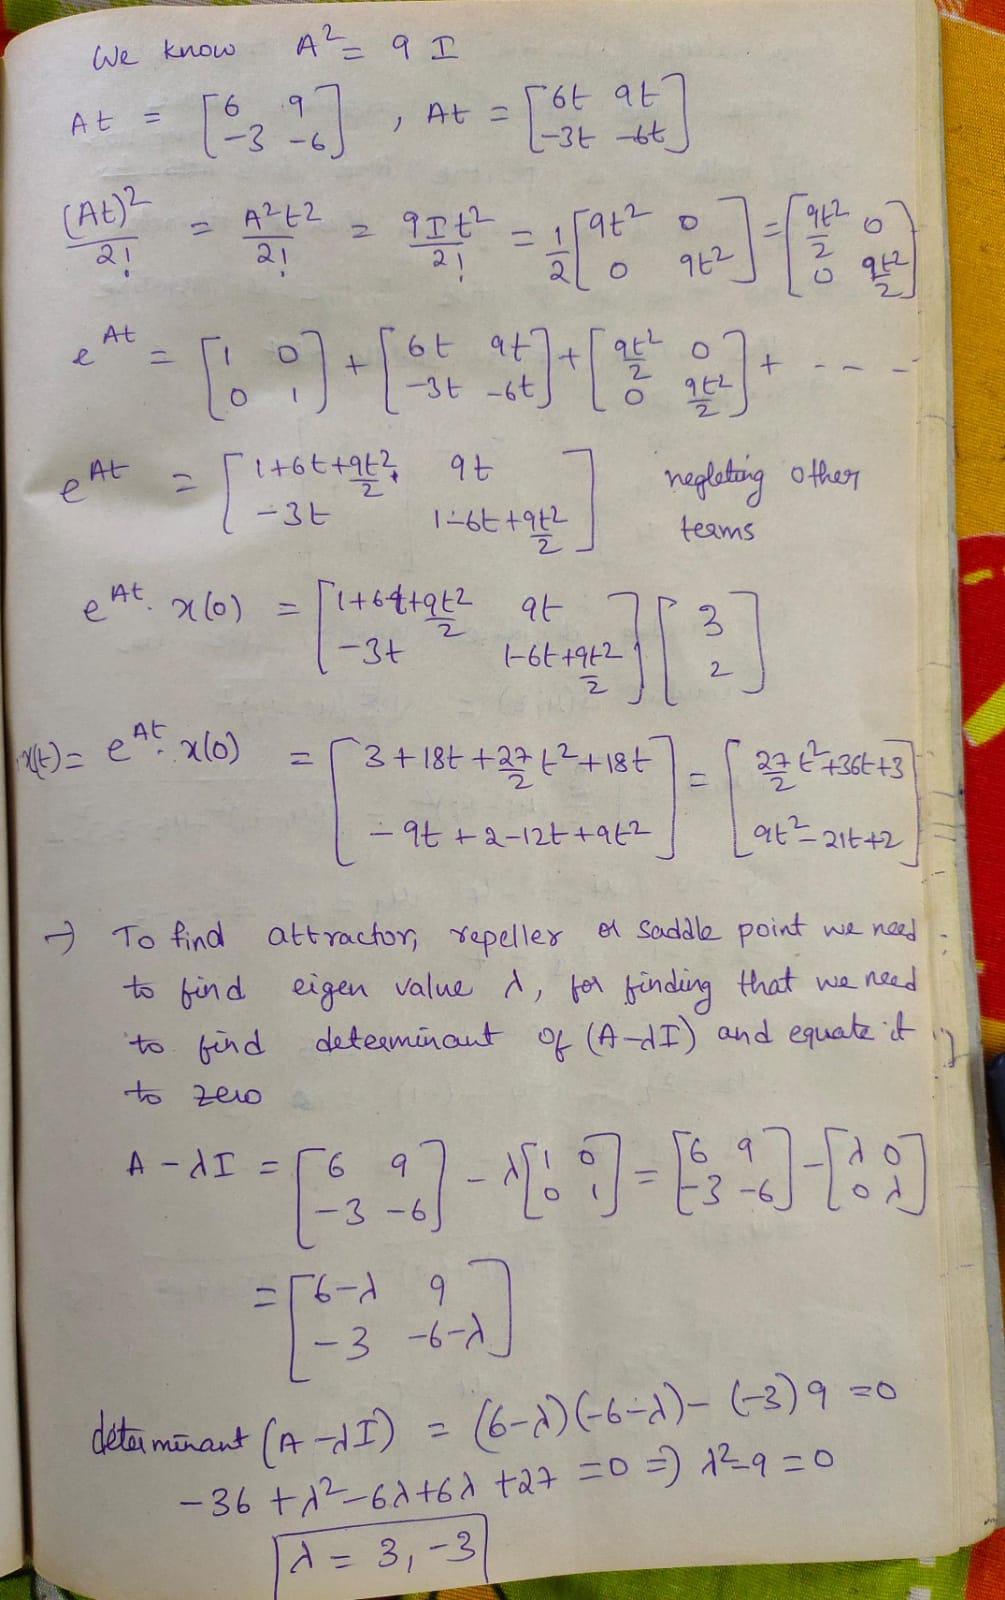 We know A² = 9 I
At = [6 9; -3 -6], At = [6t 9t; -3t -6t]
(At)²/2! = A²t²/2! = 9It²/2! = 1/2 [9t² 0; 0 9t²] = [9t²/2 0; 0 9t²/2]
e^At = [1 0; 0 1] + [6t 9t; -3t -6t] + [9t²/2 0; 0 9t²/2] + - - - -
e^At = [1+6t+9t²/2 9t; -3t 1-6t+9t²/2] negleting other terms
e^At. x(0) = [1+6t+9t²/2 9t; -3t 1-6t+9t²/2] [3; 2]
x(t) = e^At. x(0) = [3+18t+27/2 t²+18t; -9t+2-12t+9t²] = [27/2 t²+36t+3; 9t²-21t+2]
→ To find attractor, repeller or saddle point we need
to find eigen value λ, for finding that we need
to find determinant of (A-λI) and equate it
to zero
A-λI = [6 9; -3 -6] - λ[1 0; 0 1] = [6 9; -3 -6] - [λ 0; 0 λ]
= [6-λ 9; -3 -6-λ]
determinant (A-λI) = (6-λ)(-6-λ)- (-3)9 =0
-36+λ²-6λ+6λ+27 =0 => λ²-9=0
λ = 3, -3